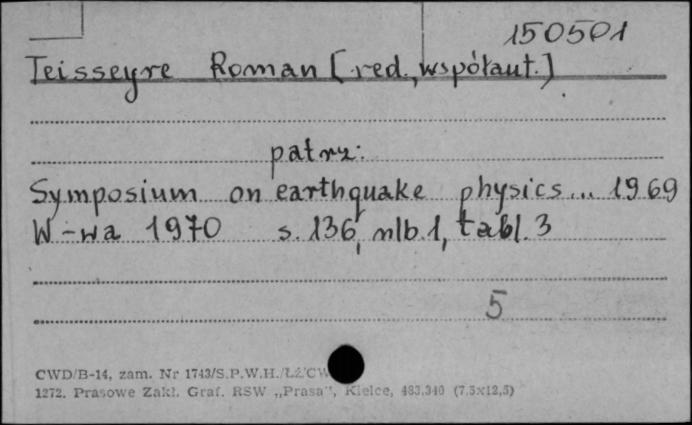 150501
Teisseyre Roman [red., współaut.]
patrz:
Symposium on earthquake physics... 1969
W-wa 1970 s. 136, nlb. 1, tabl. 3
5
CWD/B-14, zam. Nr 1743/S.P.W.H./ŁŻ/CW
1272. Prasowe Zakł. Graf. RSW „Prasa", Kielce, 483.340 (7,5x12,5)